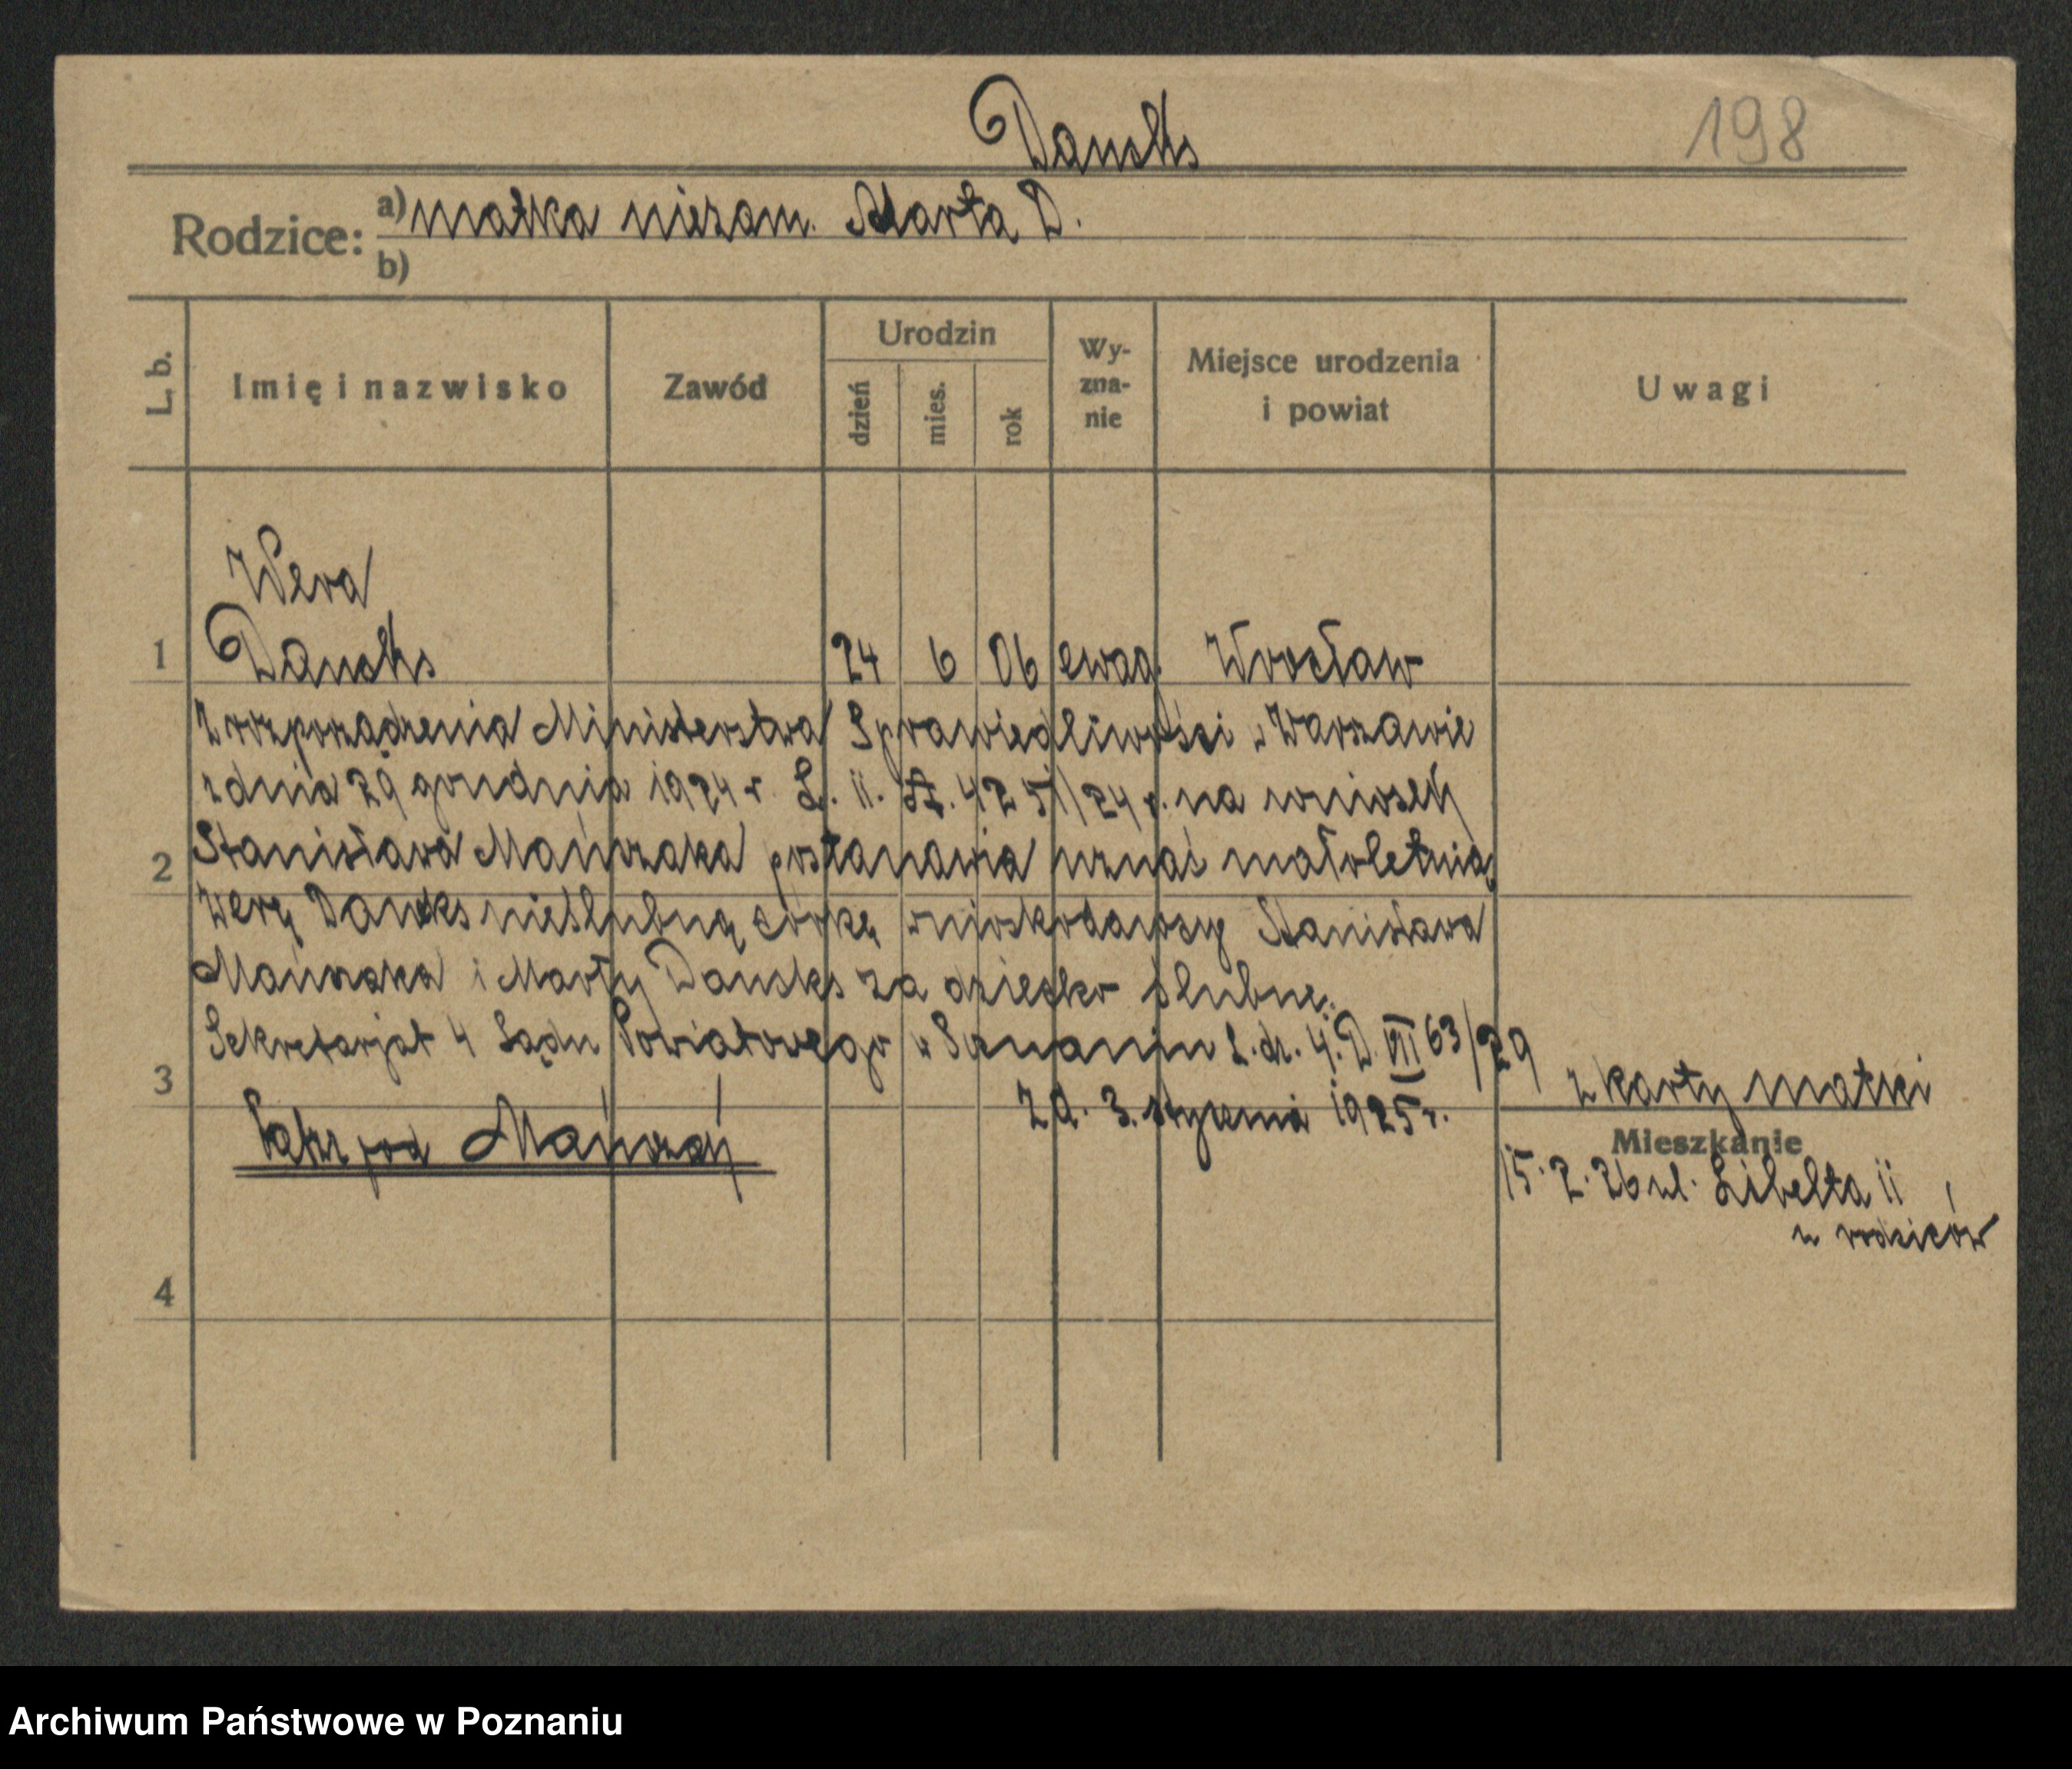 Dancks
198
Rodzice: a) matka niezam. Marta D.
b)
L. b.
Imię i nazwisko
Zawód
Urodzin
dzień
mies.
rok
Wy-
zna-
nie
Miejsce urodzenia
i powiat
Uwagi
Wera
1 Dancks 24 6 06 ewag. Wrocław
Z rozporządzenia Ministerstwa Sprawiedliwości w Warszawie
z dnia 29 grudnia 1924 r. L. II. 4251/24 r. na wniosek
2 Stanisława Mańczaka postanawia uznać małoletnią
Werę Dancks nieślubną córkę wnioskodawcy Stanisława
Mańczaka i Marty Dancks za dziecko ślubne.
Sekretarjat 4 Sądu Powiatowego w Poznaniu L. dz. 4. D. VII 63/29
3 z d. 3. stycznia 1925 r.
z karty matki
Patrz pod Mańczak
Mieszkanie
15. 2. 26 ul. Libelta 11
u rodziców
4
Archiwum Państwowe w Poznaniu